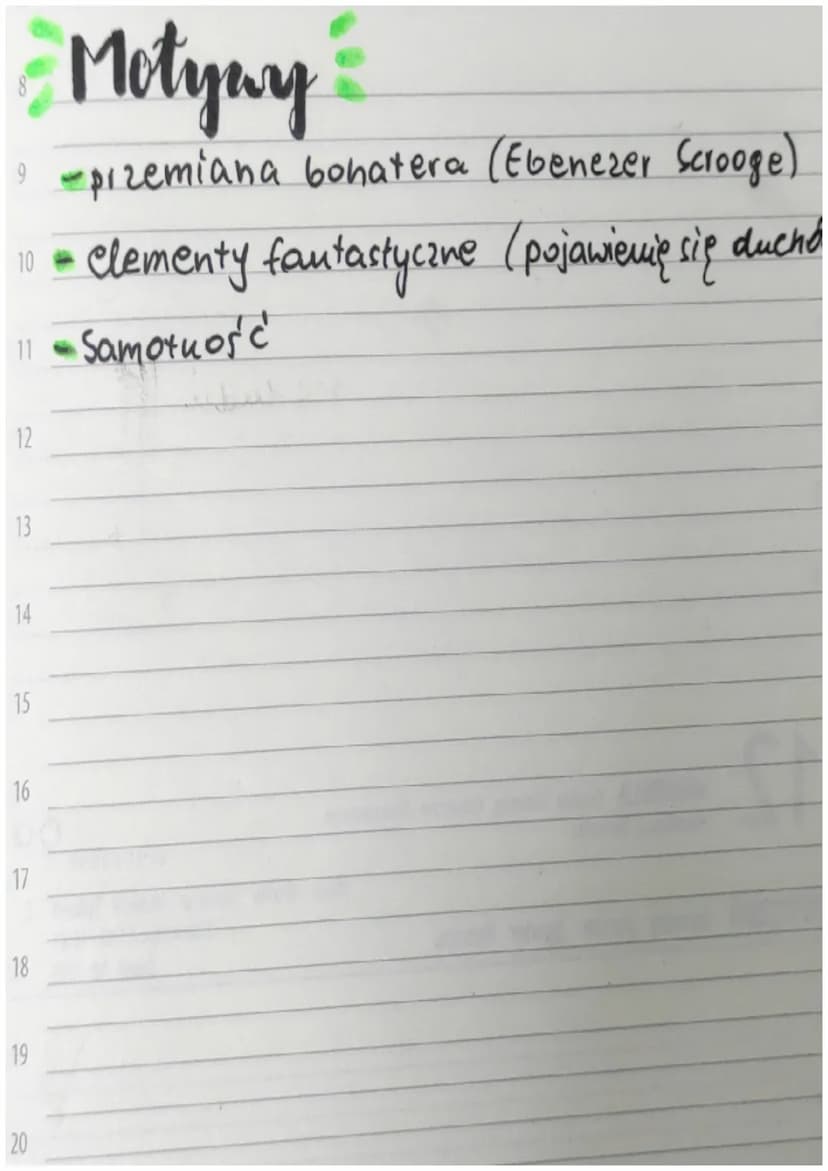 Motywy
8
9 - przemiana bohatera (Ebenezer Scrooge)
10 - elementy fantastyczne (pojawienię się duchó
11 - Samotność
12
13
14
15
16
17
18
19
20